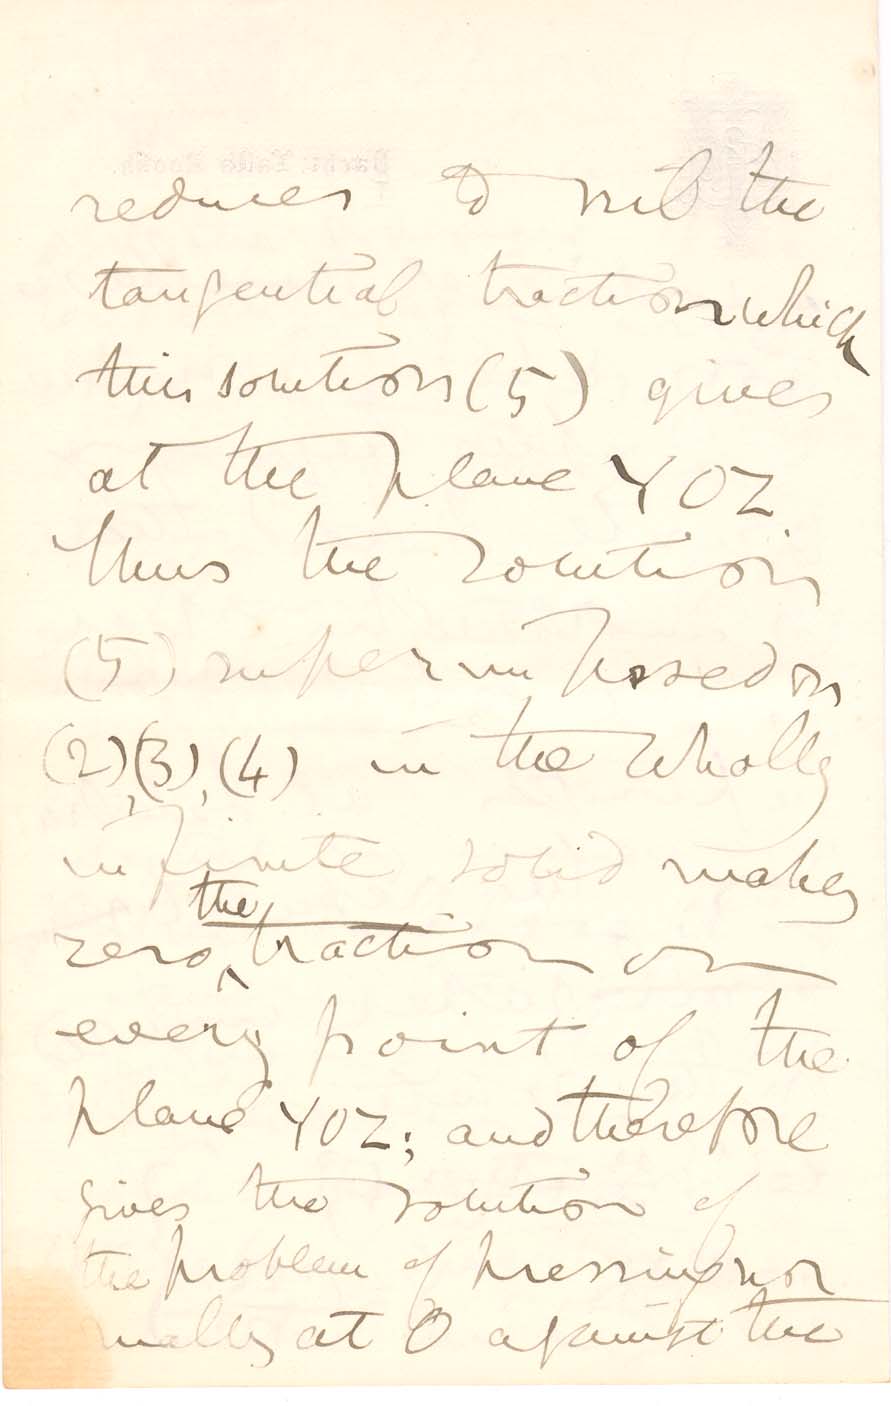 reduces to nil the
tangential traction which
this solution (5) gives
at the plane YOZ
Thus the solution
(5) superimposed on
(2), (3), (4) in the wholly
infinite solid makes
the
zero traction on
every point of the
plane YOZ; and therefore
gives the solution of
the problem of pressing nor
mally at O against the